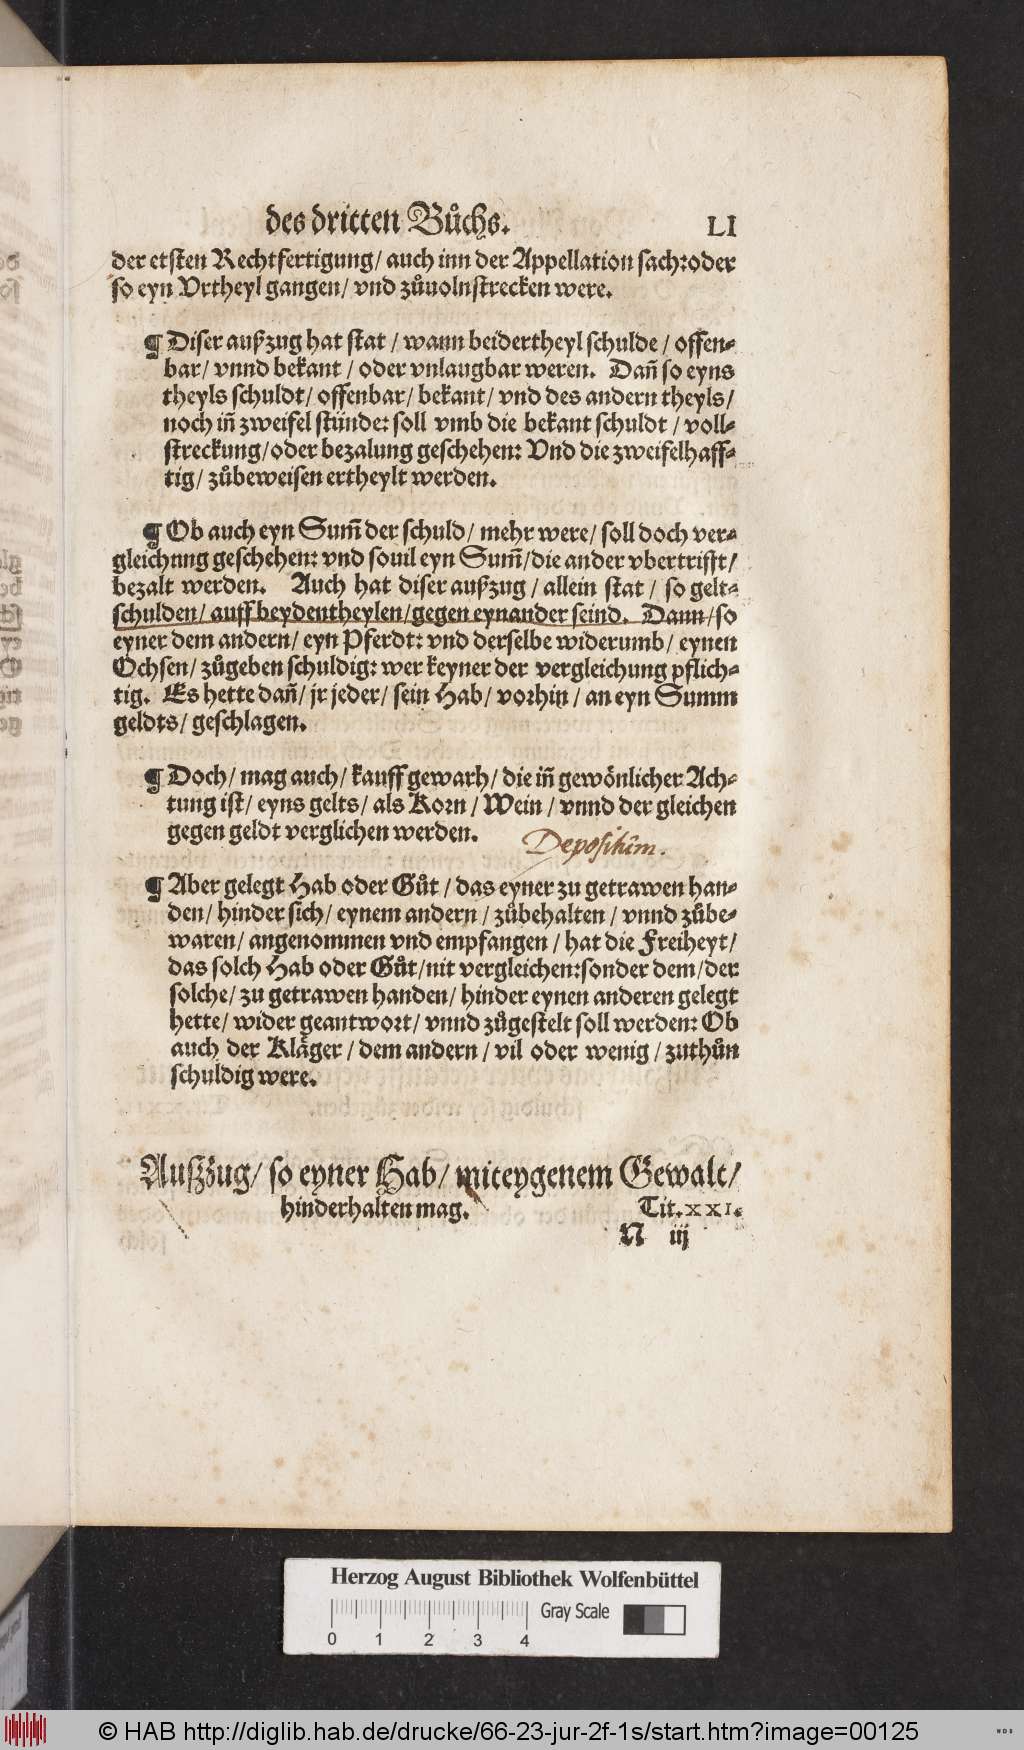 des dritten Bůchs. LI
der etsten Rechtfertigung/ auch inn der Appellation sach: oder
so eyn Vrtheyl gangen/ vnd zůuolnstrecken were.
¶ Diser außzug hat stat / wann beidertheyl schulde / offen⸗
bar/ vnnd bekant / oder vnlaugbar weren. Dañ so eyns
theyls schuldt/ offenbar/ bekant/ vnd des andern theyls/
noch iñ zweifel stünde: soll vmb die bekant schuldt / voll⸗
streckung/oder bezalung geschehen: Vnd die zweifelhaff⸗
tig/ zůbeweisen ertheylt werden.
¶ Ob auch eyn Sum̃ der schuld/ mehr were/ soll doch ver⸗
gleichnng geschehen: vnd souil eyn Sum̃/die ander vbertrifft/
bezalt werden. Auch hat diser außzug / allein stat / so gelt⸗
schulden/ auff beydentheylen/gegen eynander seind. Dann/so
eyner dem andern/ eyn Pferdt: vnd derselbe widerumb/ eynen
Ochsen/ zůgeben schuldig: wer keyner der vergleichung pflich⸗
tig. Es hette dañ/ jr jeder/ sein Hab/ vorhin / an eyn Summ
geldts/ geschlagen.
¶ Doch/ mag auch/ kauff gewarh/ die iñ gewönlicher Ach⸗
tung ist/ eyns gelts/ als Korn / Wein / vnnd der gleichen
gegen geldt verglichen werden.
Depositum.
¶ Aber gelegt Hab oder Gůt / das eyner zu getrawen han⸗
den/ hinder sich/ eynem andern / zůbehalten / vnnd zůbe⸗
waren/ angenommen vnd empfangen / hat die Freiheyt/
das solch Hab oder Gůt/nit vergleichen:sonder dem/der
solche/ zu getrawen handen/ hinder eynen anderen gelegt
hette/ wider geantwort/ vnnd zůgestelt soll werden: Ob
auch der Kläger / dem andern / vil oder wenig / zuthůn
schuldig were.
Außzug/ so eyner Hab/ mit eygenem Gewalt/
hinderhalten mag. Tit. XXI.
N iij
Herzog August Bibliothek Wolfenbüttel
Gray Scale
0 1 2 3 4
© HAB http://diglib.hab.de/drucke/66-23-jur-2f-1s/start.htm?image=00125